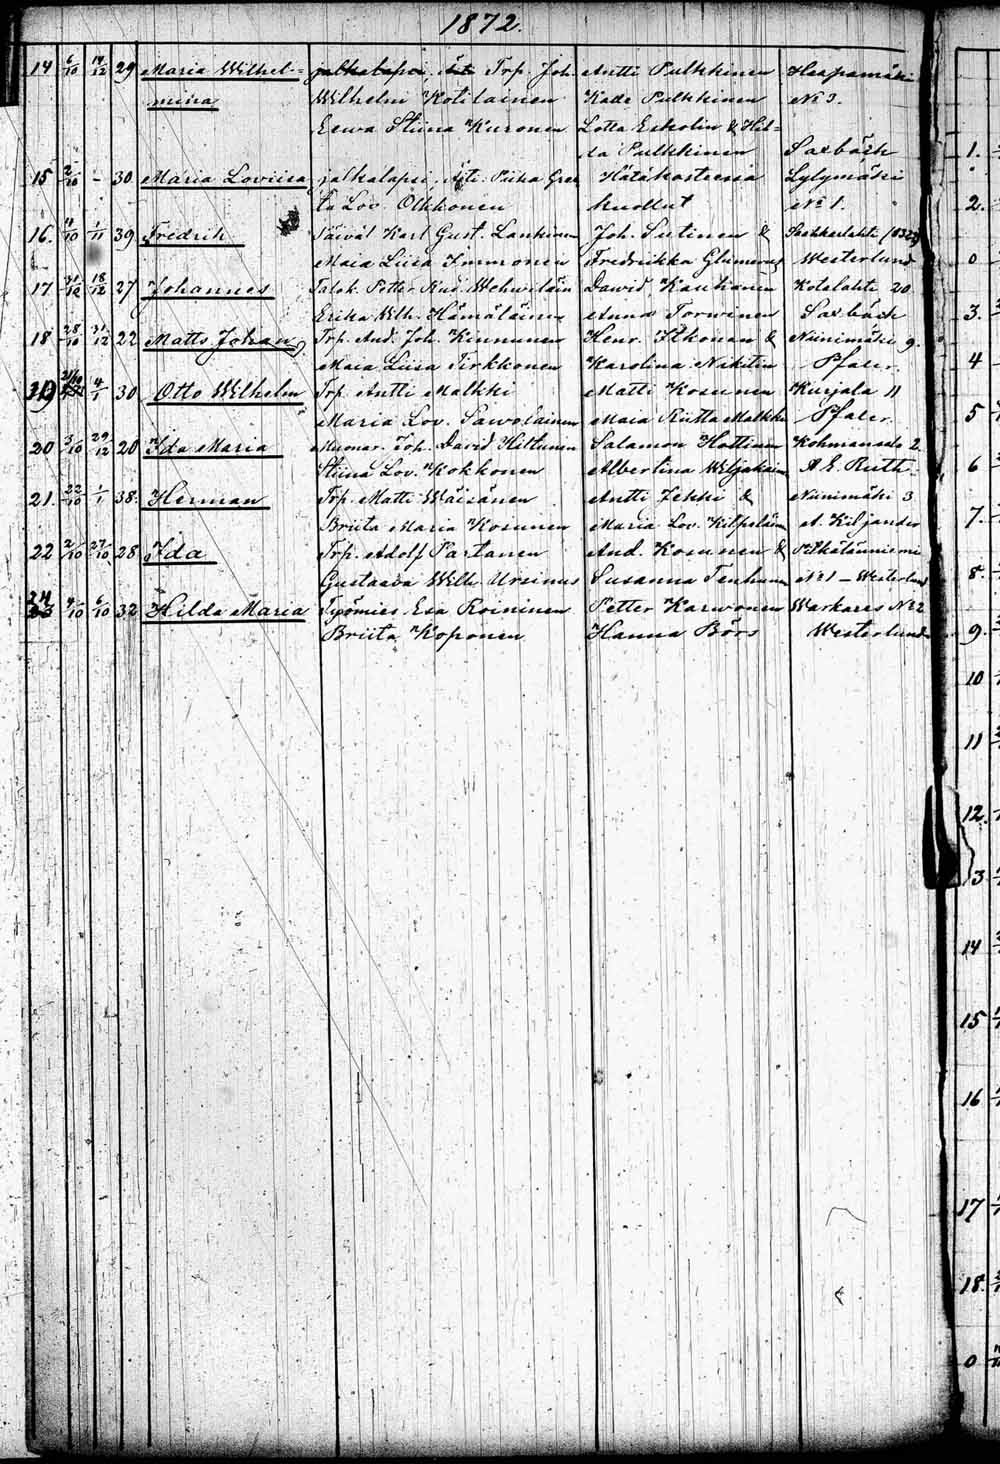 1872.
14 6/10 14/12 29 Maria Wilhel= jalkalapsi, Äiti Trp. Joh. Antti Pulkkinen Haapamäki
mina Wilhelm Kotilainen Kade Pulkkinen No 3.
Eewa Stiina Kuronen Lotta Eskolin & Hil=
da Pulkkinen Saxbäck
15 2/10 - 30 Maria Loviisa jalkalapsi, Äiti. Piika Gre Hätäkasteessa Lylymäki
ta Lov. Olkkonen kuollut No 1.
16. 4/10 1/11 39 Fredrik Päiväl Karl Gust. Lankinen Joh. Sutinen &
Maia Liisa Immonen Fredriikka Glumerus Westerlund
17 31/12 18/12 27 Johannes Talok. Petter Rud. Wehwiläin Dawid Kautianen Kotalahti 20
Erika Wilh. Hämäläinen Anna Torwinen Saxbäck
18 28/10 31/12 22 Matts Johan Trp. And. Joh. Kinnunen Henr. Itkonen & Niinimäki 9.
Maia Liisa Tirkkonen Karolina Nikitin Pfaler.
19 4/1 30 Otto Wilhelm Trp. Antti Malkki Matti Kosunen Kurjala 11
Maria Lov. Sawolainen Maia Riitta Malkki Pfaler.
20 3/10 29/12 20 Ida Maria Muonar. Joh. David Hiltunen Salamon Hattinen 2.
Stiina Lov. Kokkonen Albertina Wiljakain A. E. Ruth.
21. 22/10 1/1 38. Herman Trp. Matti Wäisänen Antti Jekki & Niinimäki 3
Briita Maria Kosunen Maria Lov. Kilpeläin A. Kiljander
22 2/10 27/10 28 Ida Trp. Adolf Partanen And. Kosunen & Pitkälänniemi
Gustaava Wilh. Ursinus Susanna Tenhunen No 1 – Westerlund
24 4/10 6/10 32 Hilda Maria Työmies Esa Roininen Petter Karwonen Warkaus No 2
Briita Koponen Hanna Börs Westerlund
1.
2.
0
3.
4
5
6
7.
8.
9.
10
11
12.
13.
14
15
16
17
18.
0